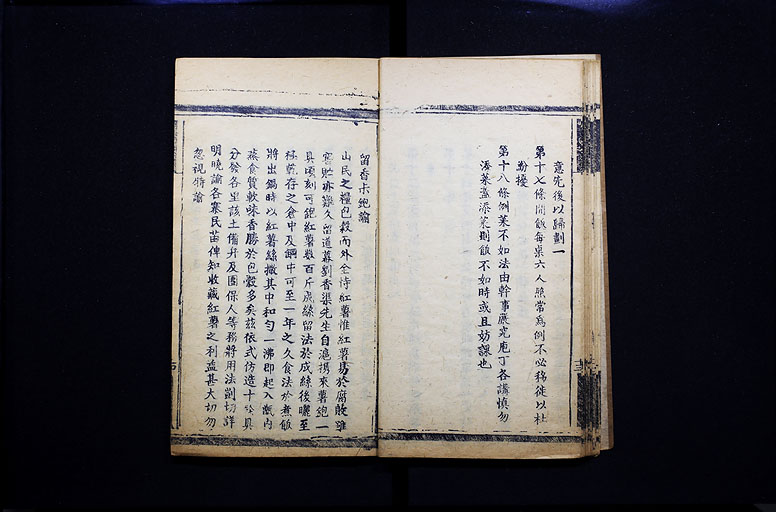 意先後以歸劃一
第十七條開飯每桌六人照常為例不必移徙以杜
紛擾
第十八條例菜不如法由幹事懲究庖丁各謹慎勿
添菜蓋添菜則飯不如時或且妨課也
留香示絶諭
山民之糧包穀而外全恃紅薯惟紅薯易於腐敗雖
窖貯亦難久留道幕劉香渠先生自滬携來薯鉋一
具頃刻可鉋紅薯數百斤成絲留法於成絲後曬至
極乾存之倉中及鋼中可至一年之久食法於煮飯
將出鍋時以紅薯絲撒其中和勻一沸即起入甑內
蒸食質軟味香勝於包穀多矣茲依式仿造十餘具
分發各里該土備弁及團保人等務將用法剴切詳
明曉諭各寨民苗俾知收藏紅薯之利益甚大切勿
忽視特諭